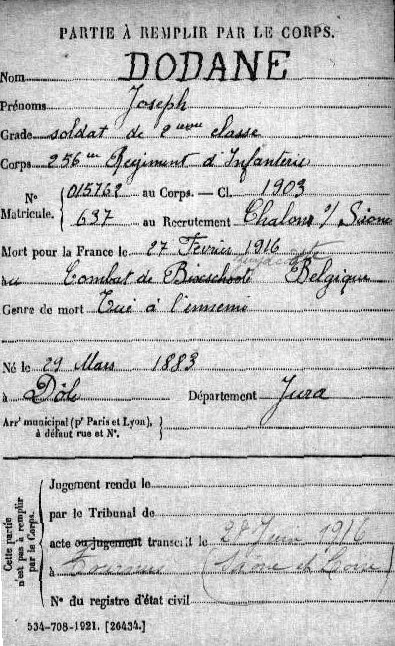 PARTIE À REMPLIR PAR LE CORPS.
Nom DODANE
Prénoms Joseph
Grade soldat de 2eme classe
Corps 256me Régiment d'Infanterie
N° Matricule. { 015762 au Corps. — Cl. 1903
637 au Recrutement Chalons s/ Saone
Mort pour la France le 27 Fevrier 1916
au Combat de Bixschoote Belgique
Genre de mort Tué à l'ennemi
Né le 29 Mars 1883
à Dôle Département Jura
Arrt municipal (pr Paris et Lyon),
à défaut rue et N°.
Cette partie n'est pas à remplir par le Corps.
Jugement rendu le
par le Tribunal de
acte ou jugement transcrit le 28 Juin 1916
à Tournus (Saône et Loire)
N° du registre d'état civil
534-708-1921. [26434.]